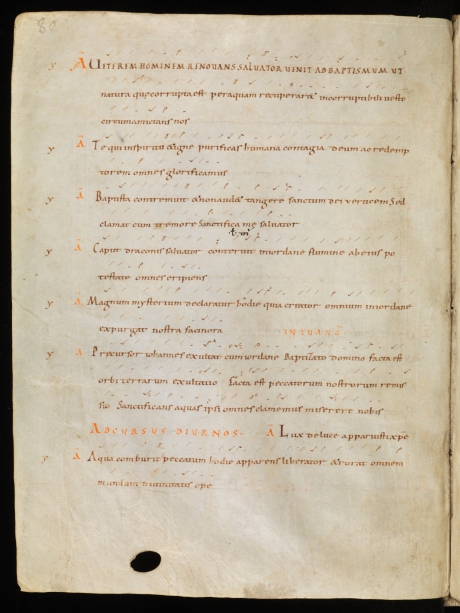 80
y A Ueterem hominem renouans saluator uenit ad baptismum ut
natura que corrupta est per aquam recuperaret incorruptibili ueste
circumamictans nos
y A Te qui in spiritu et igne purificas humana contagia deum ac redemp
torem omnes glorificamus
y A Baptista contremuit et non audet tangere sanctum dei uerticem Sed
clamat cum tremore Sanctifica me saluator
y A Caput draconis saluator conteruit in iordane flumine ab eius po
testate omnes eripiens
y A Magnum mysterium declaratur hodie quia creator omnium in iordane
expurgat nostra facinora IN EUANG
y A Precursor iohannes exultat cum iordane Baptizato domino facta est
orbi terrarum exultatio Facta est peccatorum nostrorum remis
sio Sanctificans aquas ipsi omnes clamemus miserere nobis
AD CURSUS DIURNOS A Lux de luce apparuisti xpe
y A Aqua comburit peccatum hodie apparens liberator et rorat omnem
mundum diuinitatis ope